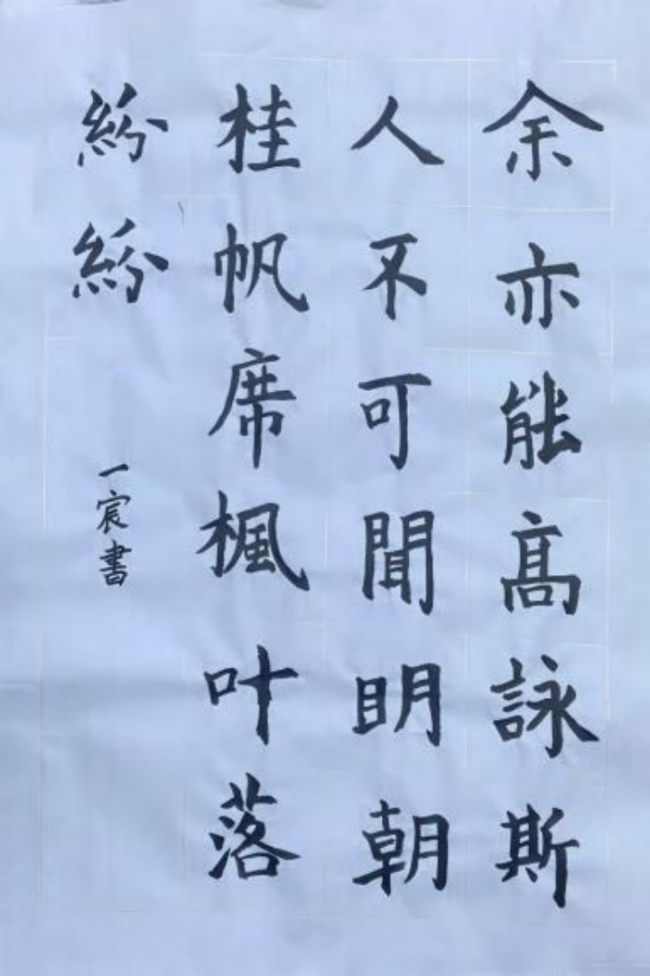 余亦能高詠斯
人不可聞明朝
桂帆席楓叶落
紛紛
一宸書